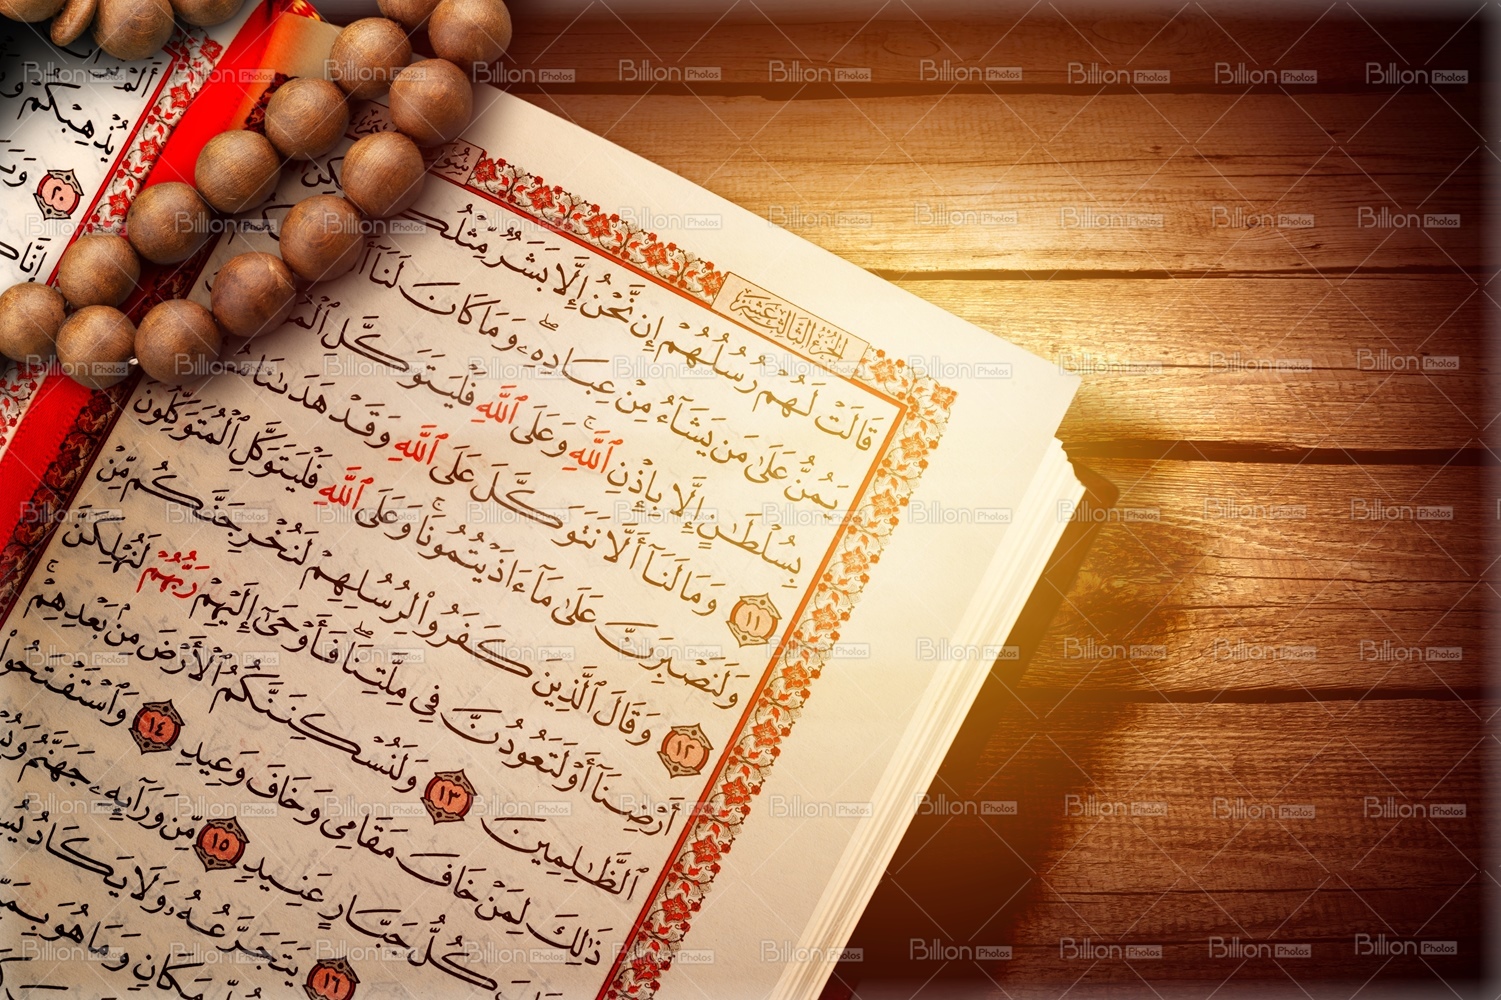 يُذْهِبْكُمْ
٢٠
سُورَةُ
الجُزْءُ الثَّالِثَ عَشَرَ
قَالَتْ لَهُمْ رُسُلُهُمْ إِن نَّحْنُ إِلَّا بَشَرٌ مِّثْلُكُ
يَمُنُّ عَلَىٰ مَن يَشَآءُ مِنْ عِبَادِهِۦ ۖ وَمَا كَانَ لَنَآ
بِسُلْطَٰنٍ إِلَّا بِإِذْنِ ٱللَّهِ ۚ وَعَلَى ٱللَّهِ فَلْيَتَوَكَّلِ ٱلْمُ
١١ وَمَا لَنَآ أَلَّا نَتَوَكَّلَ عَلَى ٱللَّهِ وَقَدْ هَدَىٰنَا
وَلَنَصْبِرَنَّ عَلَىٰ مَآ ءَاذَيْتُمُونَا ۚ وَعَلَى ٱللَّهِ فَلْيَتَوَكَّلِ ٱلْمُتَوَكِّلُونَ
١٢ وَقَالَ ٱلَّذِينَ كَفَرُوا۟ لِرُسُلِهِمْ لَنُخْرِجَنَّكُم مِّنْ
أَرْضِنَآ أَوْ لَتَعُودُنَّ فِى مِلَّتِنَا ۖ فَأَوْحَىٰٓ إِلَيْهِمْ رَبُّهُمْ لَنُهْلِكَنَّ
ٱلظَّٰلِمِينَ ١٣ وَلَنُسْكِنَنَّكُمُ ٱلْأَرْضَ مِنۢ بَعْدِهِمْ ۚ
ذَٰلِكَ لِمَنْ خَافَ مَقَامِى وَخَافَ وَعِيدِ ١٤ وَٱسْتَفْتَحُوا۟
كُلُّ جَبَّارٍ عَنِيدٍ ١٥ مِّن وَرَآئِهِۦ جَهَنَّمُ
يَتَجَرَّعُهُۥ وَلَا يَكَادُ
مَكَانٍ وَمَا هُوَ
١٦
Billion Photos